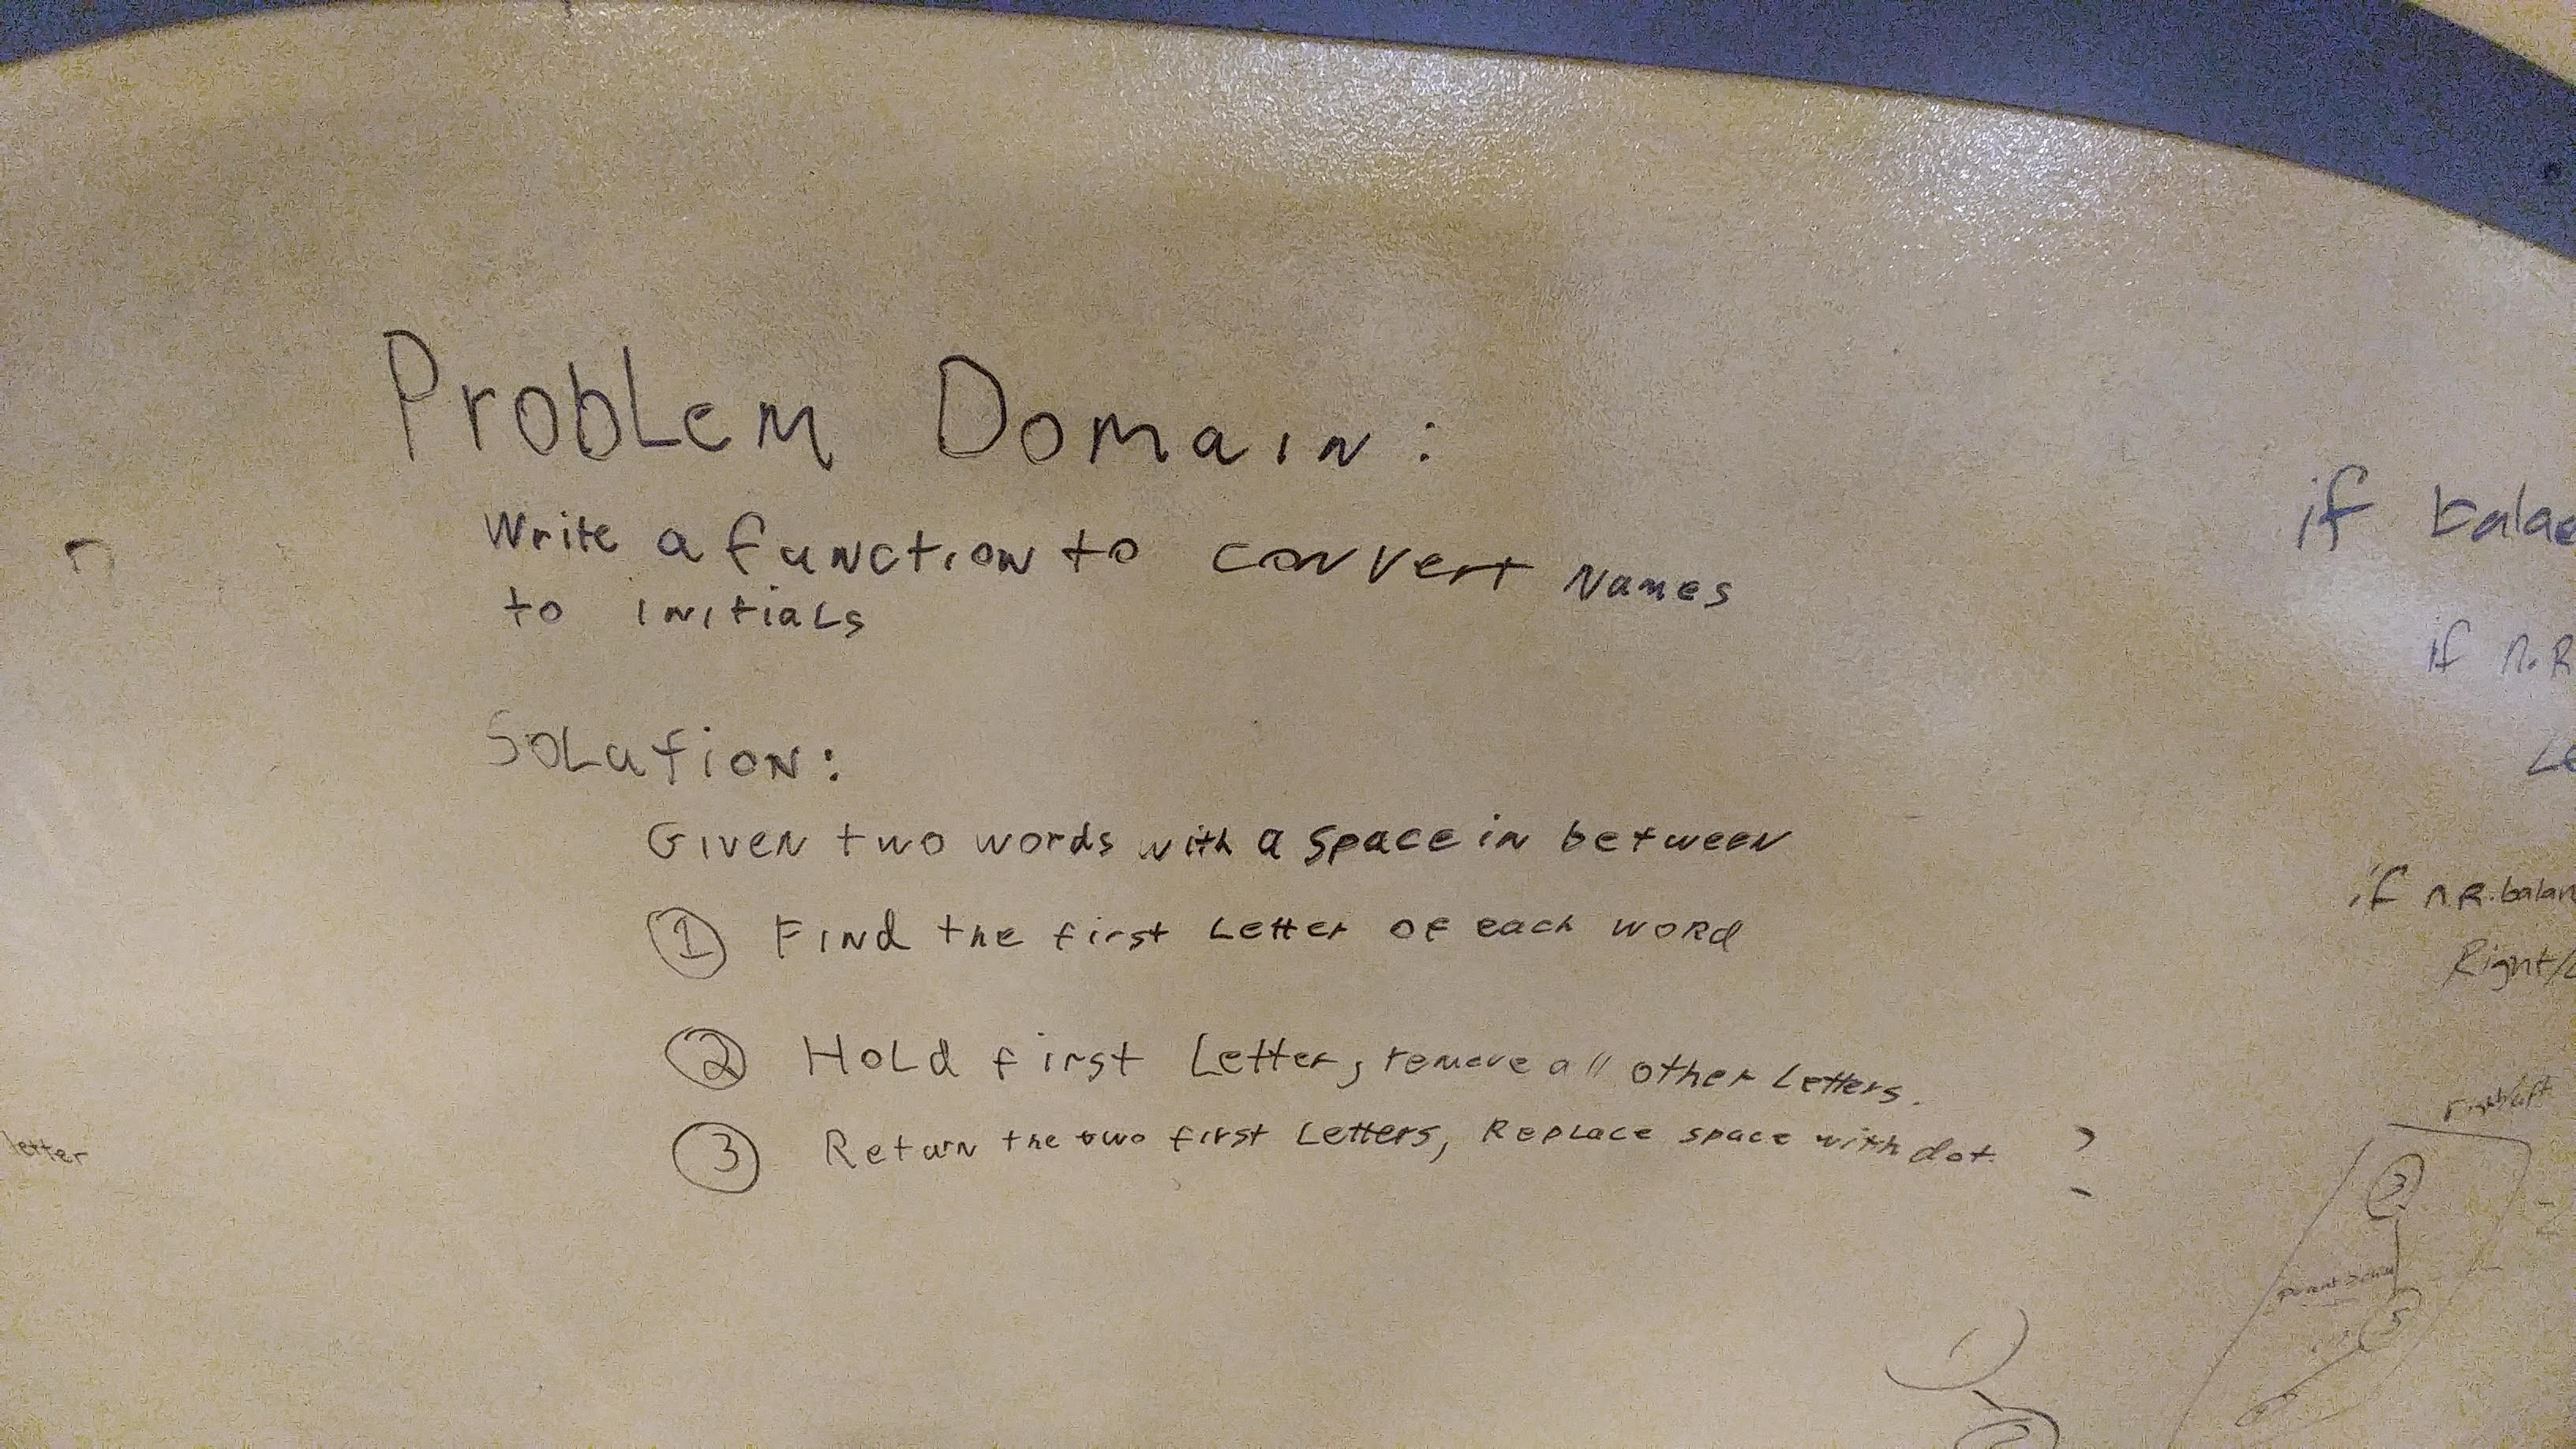 Problem Domain:
Write a function to convert Names
to initials
Solution:
Given two words with a space in between
① Find the first Letter of each word
② Hold first Letter, remove all other Letters.
③ Return the two first Letters, Replace space with dot.
letter
if
if n.R
if n.R.balan
Right/L
right/left
3
5